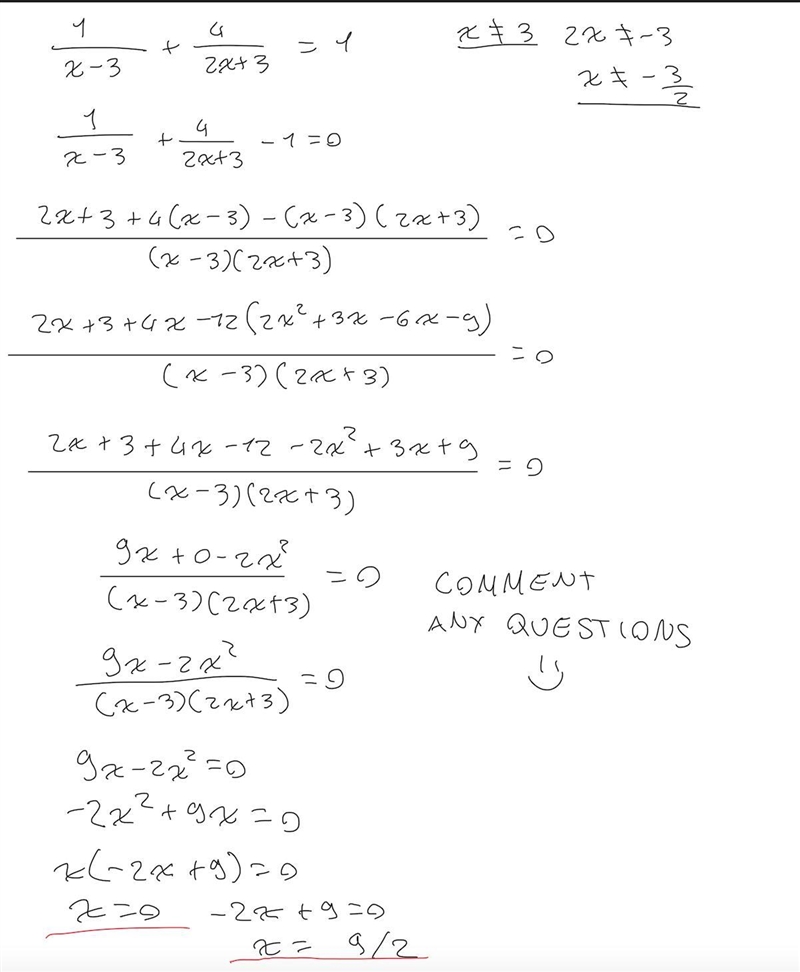 1/(x-3) + 4/(2x+3) = 1
x ≠ 3 2x ≠ -3
x ≠ -3/2
1/(x-3) + 4/(2x+3) - 1 = 0
(2x+3+4(x-3)-(x-3)(2x+3))/((x-3)(2x+3)) = 0
(2x+3+4x-12(2x²+3x-6x-9))/((x-3)(2x+3)) = 0
(2x+3+4x-12-2x²+3x+9)/((x-3)(2x+3)) = 0
(9x+0-2x²)/((x-3)(2x+3)) = 0
COMMENT
ANY QUESTIONS
(9x-2x²)/((x-3)(2x+3)) = 0
9x-2x²=0
-2x²+9x=0
x(-2x+9)=0
x=0 -2x+9=0
x= 9/2